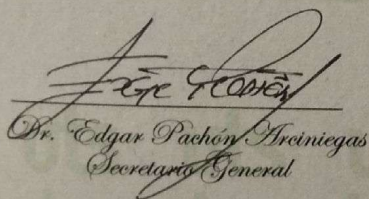 Dr. Edgar Pachón Arciniegas
Secretario General